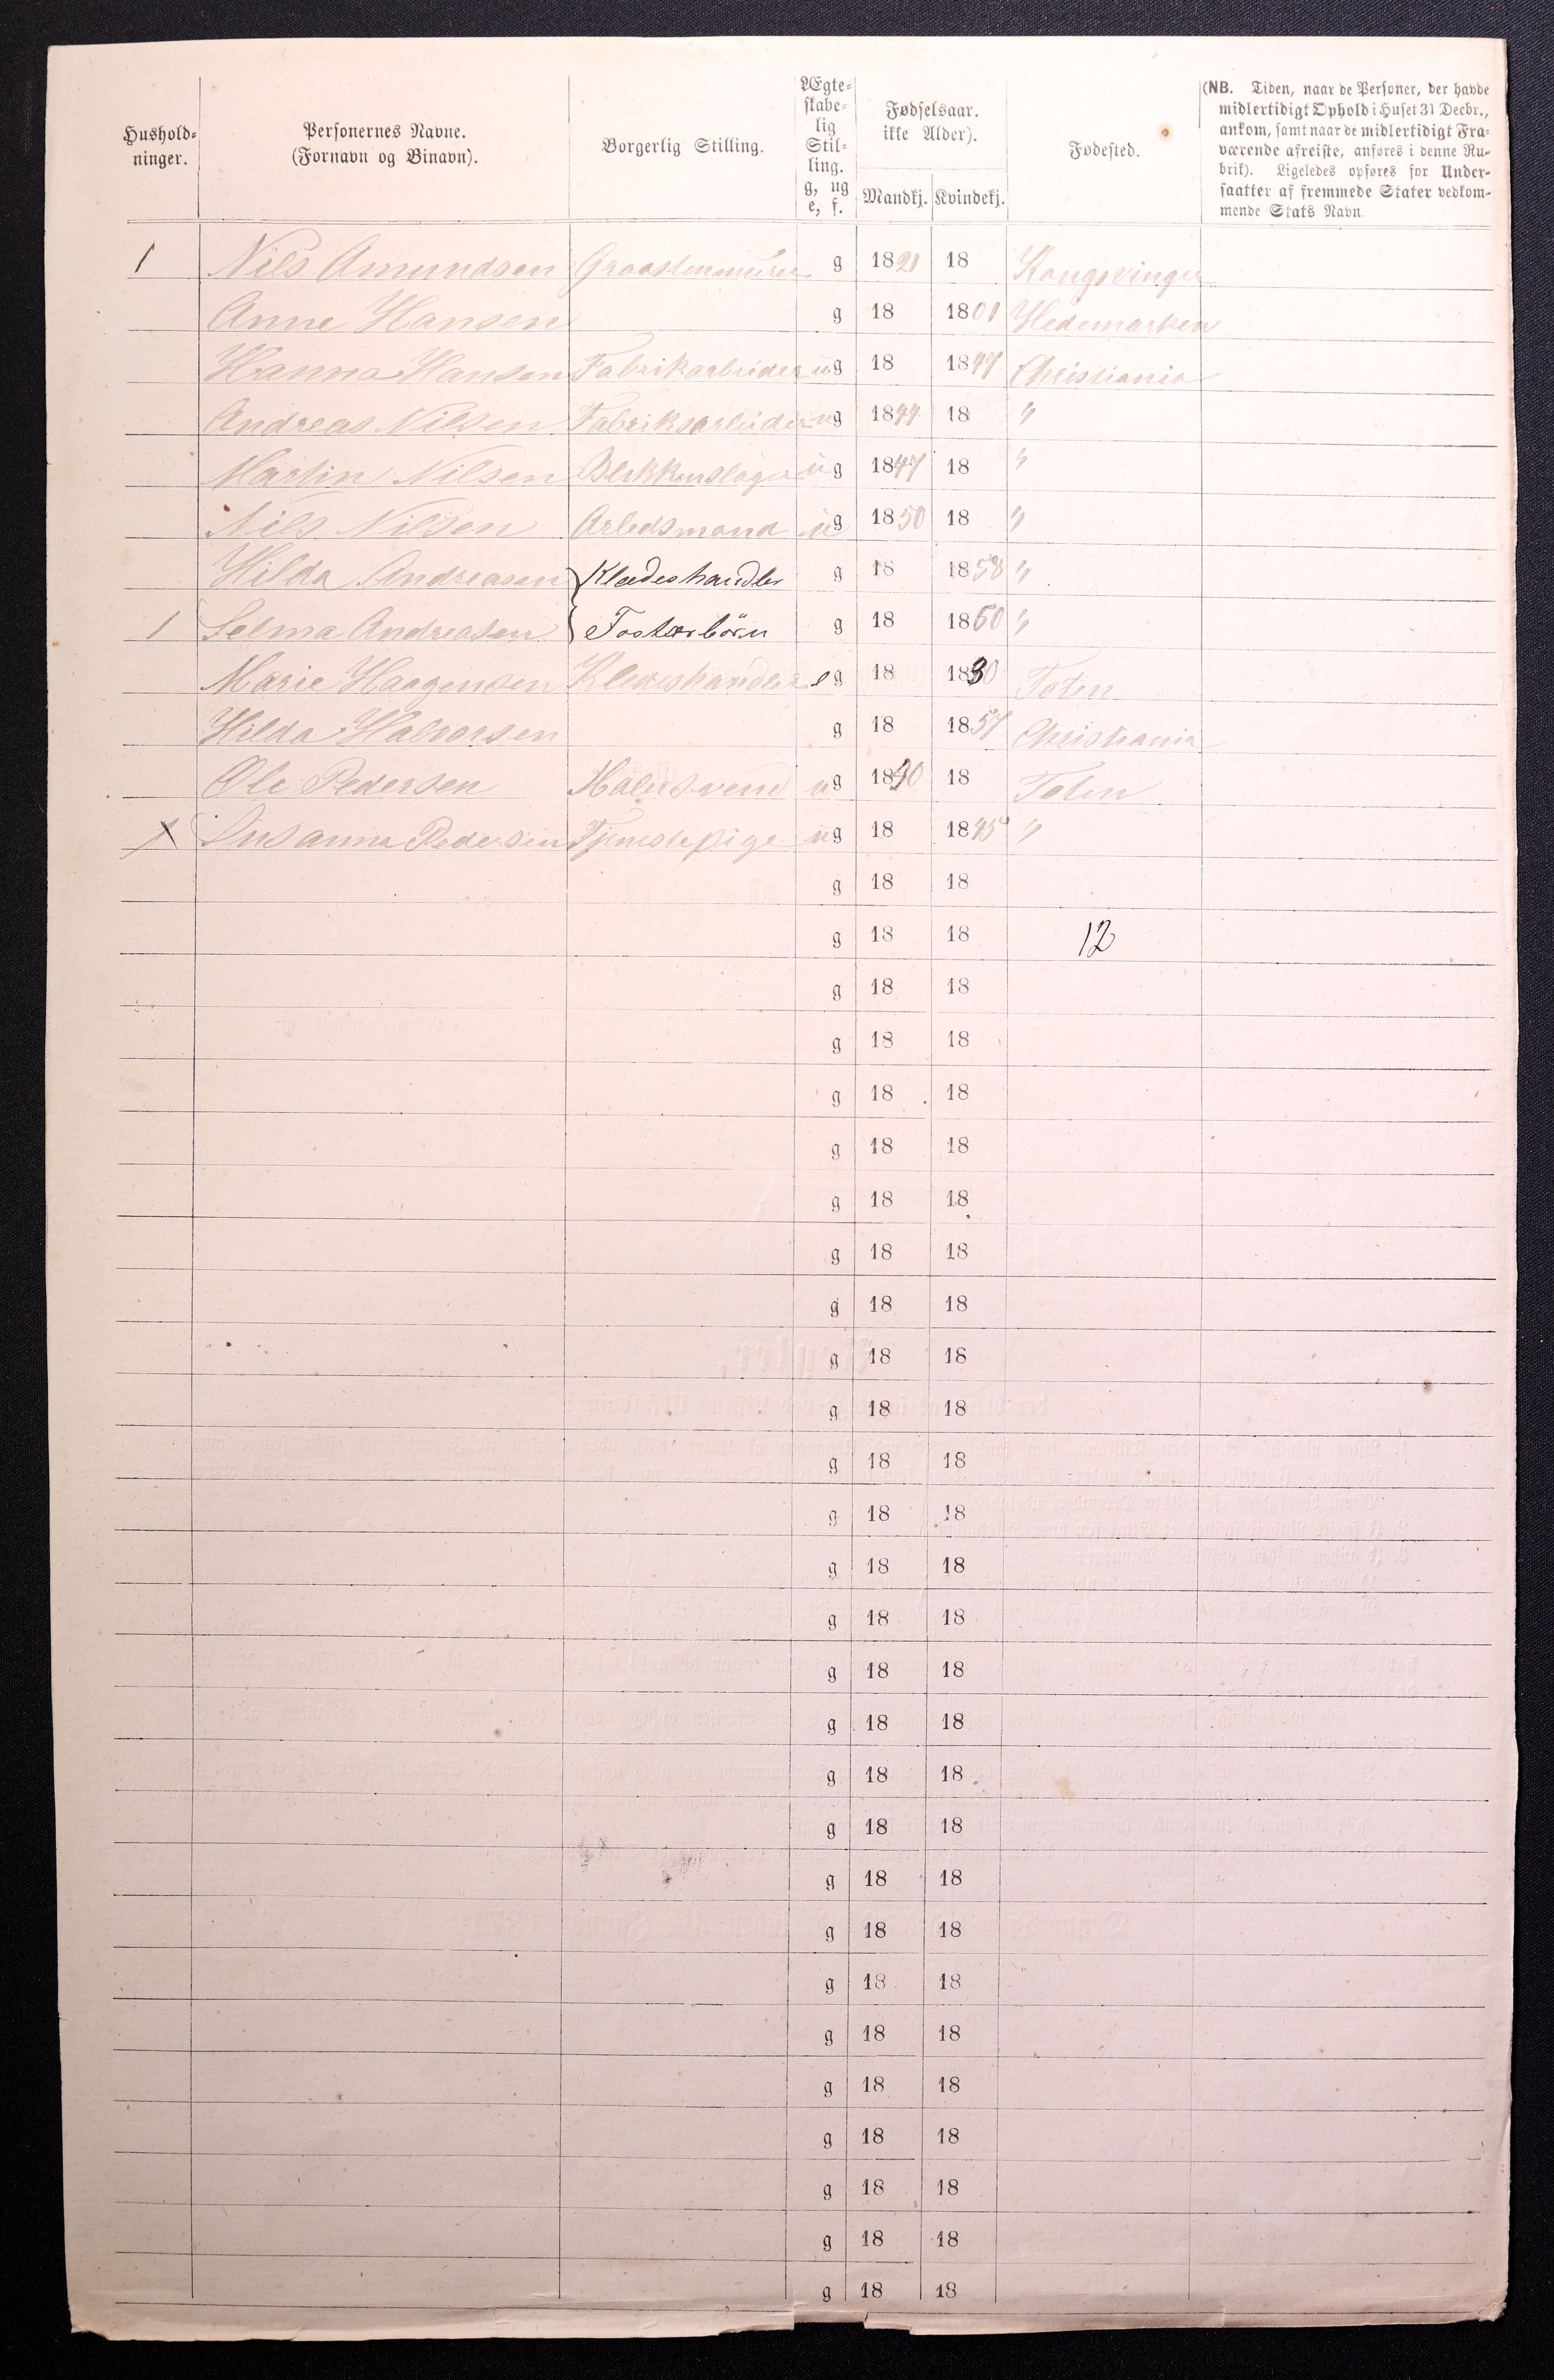 Hushold-
ninger.
Personernes Navne.
(Fornavn og Binavn).
Borgerlig Stilling.
Ægte-
skabe-
lig
Stil-
ling.
g, ug
e, f.
Fødselsaar.
ikke Alder).
Mandkj. Kvindekj.
Fødested.
(NB. Tiden, naar de Personer, der havde
midlertidigt Ophold i Huset 31 Decbr.,
ankom, samt naar de midlertidigt Fra-
værende afreiste, anføres i denne Ru-
brik). Ligeledes opføres for Under-
saatter af fremmede Stater vedkom-
mende Stats Navn.
1 Nils Amundsen Graastenmurer g 1821 18 Kongsvinger
Anne Hansen g 18 1801 Hedemarken
Hanna Hansen Fabrikarbeider ug 18 1847 Christiania
Andreas Nilsen Fabriksarbeider ug 1844 18 "
Martin Nilsen Blikkenslager ug 1847 18 "
Nils Nilsen Arbedsmand ug 1850 18 "
Hilda Andreasen } Klædeshandler g 18 1858 "
1 Selma Andreasen } Fosterbörn g 18 1860 "
Marie Haagensen Kledeshandler eg 18 1830 Toten
Hilda Halvorsen g 18 1857 Christiania
Ole Pedersen Malersvend ug 1840 18 Toten
X Susanna Pedersen Tjenestepige ug 18 1845 "
g 18 18
g 18 18 12
g 18 18
g 18 18
g 18 18
g 18 18
g 18 18
g 18 18
g 18 18
g 18 18
g 18 18
g 18 18
g 18 18
g 18 18
g 18 18
g 18 18
g 18 18
g 18 18
g 18 18
g 18 18
g 18 18
g 18 18
g 18 18
g 18 18
g 18 18
g 18 18
g 18 18
g 18 18